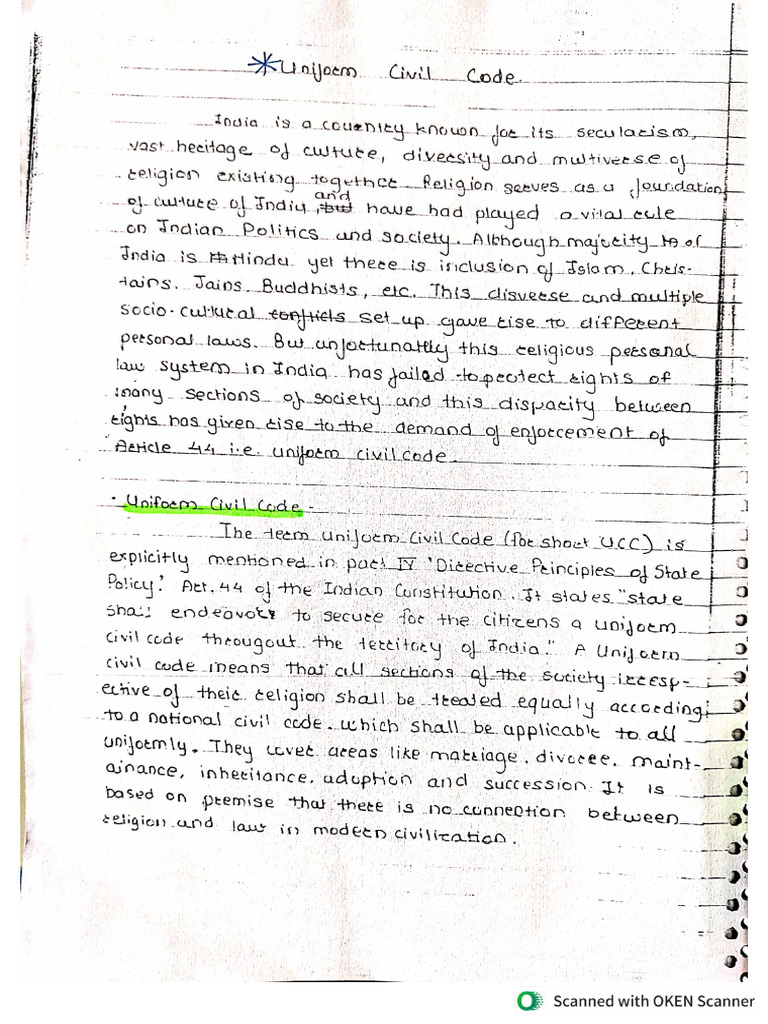 *Uniform Civil Code.
India is a country known for its secularism,
vast heritage of culture, diversity and multiverse of
religion existing together Religion serves as a foundation
of culture of India, and have had played a vital role
on Indian Politics and society. Although majority of
India is Hindu yet there is inclusion of Islam, Chris-
tains, Jains, Buddhists, etc. This disverse and multiple
socio-cultural set up gave rise to different
personal laws. But unfortunatly this religious personal
law system in India has failed to protect rights of
many sections of society and this disparity between
rights has given rise to the demand of enforcement of
Article 44 i.e. uniform civil code.
· Uniform Civil Code -
The term Uniform Civil Code (for short UCC) is
explicitly mentioned in part IV 'Directive Principles of State
Policy.' Art. 44 of the Indian Constitution. It states "state
shall endeavour to secure for the citizens a uniform
civil code througout the territory of India." A Uniform
civil code means that all sections of the society irresp-
ective of their religion shall be treated equally according
to a national civil code. which shall be applicable to all
uniformly. They cover areas like marriage, divorce, maint-
ainance, inheritance, adoption and succession. It is
based on premise that there is no connection between
religion and law in modern civilization.
Scanned with OKEN Scanner